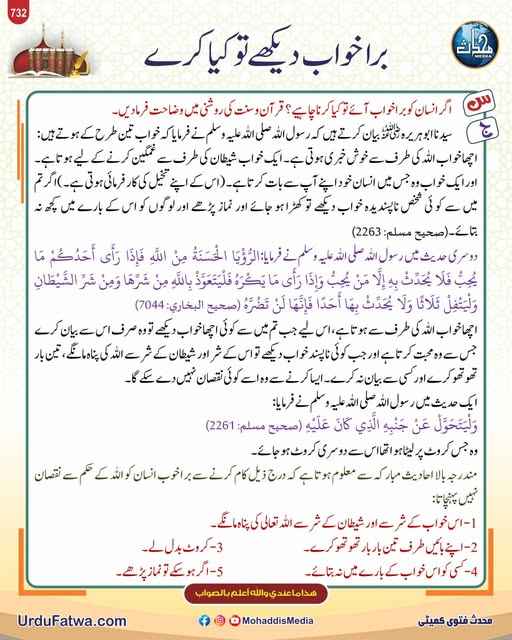 732
MEDIA
برا خواب دیکھے تو کیا کرے
س
اگر انسان کو برا خواب آئے تو کیا کرنا چاہیے؟ قرآن و سنت کی روشنی میں وضاحت فرما دیں۔
ج
سیدنا ابوہریرہ رضی اللہ عنہ بیان کرتے ہیں کہ رسول اللہ صلی اللہ علیہ وسلم نے فرمایا کہ خواب تین طرح کے ہوتے ہیں:
اچھا خواب اللہ کی طرف سے خوش خبری ہوتی ہے۔ ایک خواب شیطان کی طرف سے غمگین کرنے کے لیے ہوتا ہے۔
اور ایک خواب وہ جس میں انسان خود اپنے آپ سے بات کرتا ہے۔ (اس کے اپنے تخیل کی کارفرمائی ہوتی ہے۔) اگر تم
میں سے کوئی شخص ناپسندیدہ خواب دیکھے تو کھڑا ہو جائے اور نماز پڑھے اور لوگوں کو اس کے بارے میں کچھ نہ
بتائے۔ (صحیح مسلم: 2263)
دوسری حدیث میں رسول اللہ صلی اللہ علیہ وسلم نے فرمایا: الرُّؤْيَا الْحَسَنَةُ مِنَ اللَّهِ فَإِذَا رَأَى أَحَدُكُمْ مَا
يُحِبُّ فَلَا يُحَدِّثْ بِهِ إِلَّا مَنْ يُحِبُّ وَإِذَا رَأَى مَا يَكْرَهُ فَلْيَتَعَوَّذْ بِاللَّهِ مِنْ شَرِّهَا وَمِنْ شَرِّ الشَّيْطَانِ
وَلْيَتْفِلْ ثَلَاثًا وَلَا يُحَدِّثْ بِهَا أَحَدًا فَإِنَّهَا لَنْ تَضُرَّهُ (صحیح البخاري: 7044)
اچھا خواب اللہ کی طرف سے ہوتا ہے، اس لیے جب تم میں سے کوئی اچھا خواب دیکھے تو وہ صرف اس سے بیان کرے
جس سے وہ محبت کرتا ہے اور جب کوئی ناپسند خواب دیکھے تو اس کے شر اور شیطان کے شر سے اللہ کی پناہ مانگے، تین بار
تھو تھو کرے اور کسی سے بیان نہ کرے۔ ایسا کرنے سے وہ اسے کوئی نقصان نہیں دے سکے گا۔
ایک حدیث میں رسول اللہ صلی اللہ علیہ وسلم نے فرمایا:
وَلْيَتَحَوَّلْ عَنْ جَنْبِهِ الَّذِي كَانَ عَلَيْهِ (صحیح مسلم: 2261)
وہ جس کروٹ پر لیٹا ہوا تھا اس سے دوسری کروٹ ہو جائے۔
مندرجہ بالا احادیث مبارکہ سے معلوم ہوتا ہے کہ درج ذیل کام کرنے سے برا خوب انسان کو اللہ کے حکم سے نقصان
نہیں پہنچاتا:
1- اس خواب کے شر سے اور شیطان کے شر سے اللہ تعالی کی پناہ مانگے۔
2- اپنے بائیں طرف تین بار بار تھو تھو کرے۔ 3- کروٹ بدل لے۔
4- کسی کو اس خواب کے بارے میں نہ بتائے۔ 5- اگر ہو سکے تو نماز پڑھے۔
هذا ما عندي والله أعلم بالصواب
UrduFatwa.com
MohaddisMedia
محدث فتویٰ کمیٹی